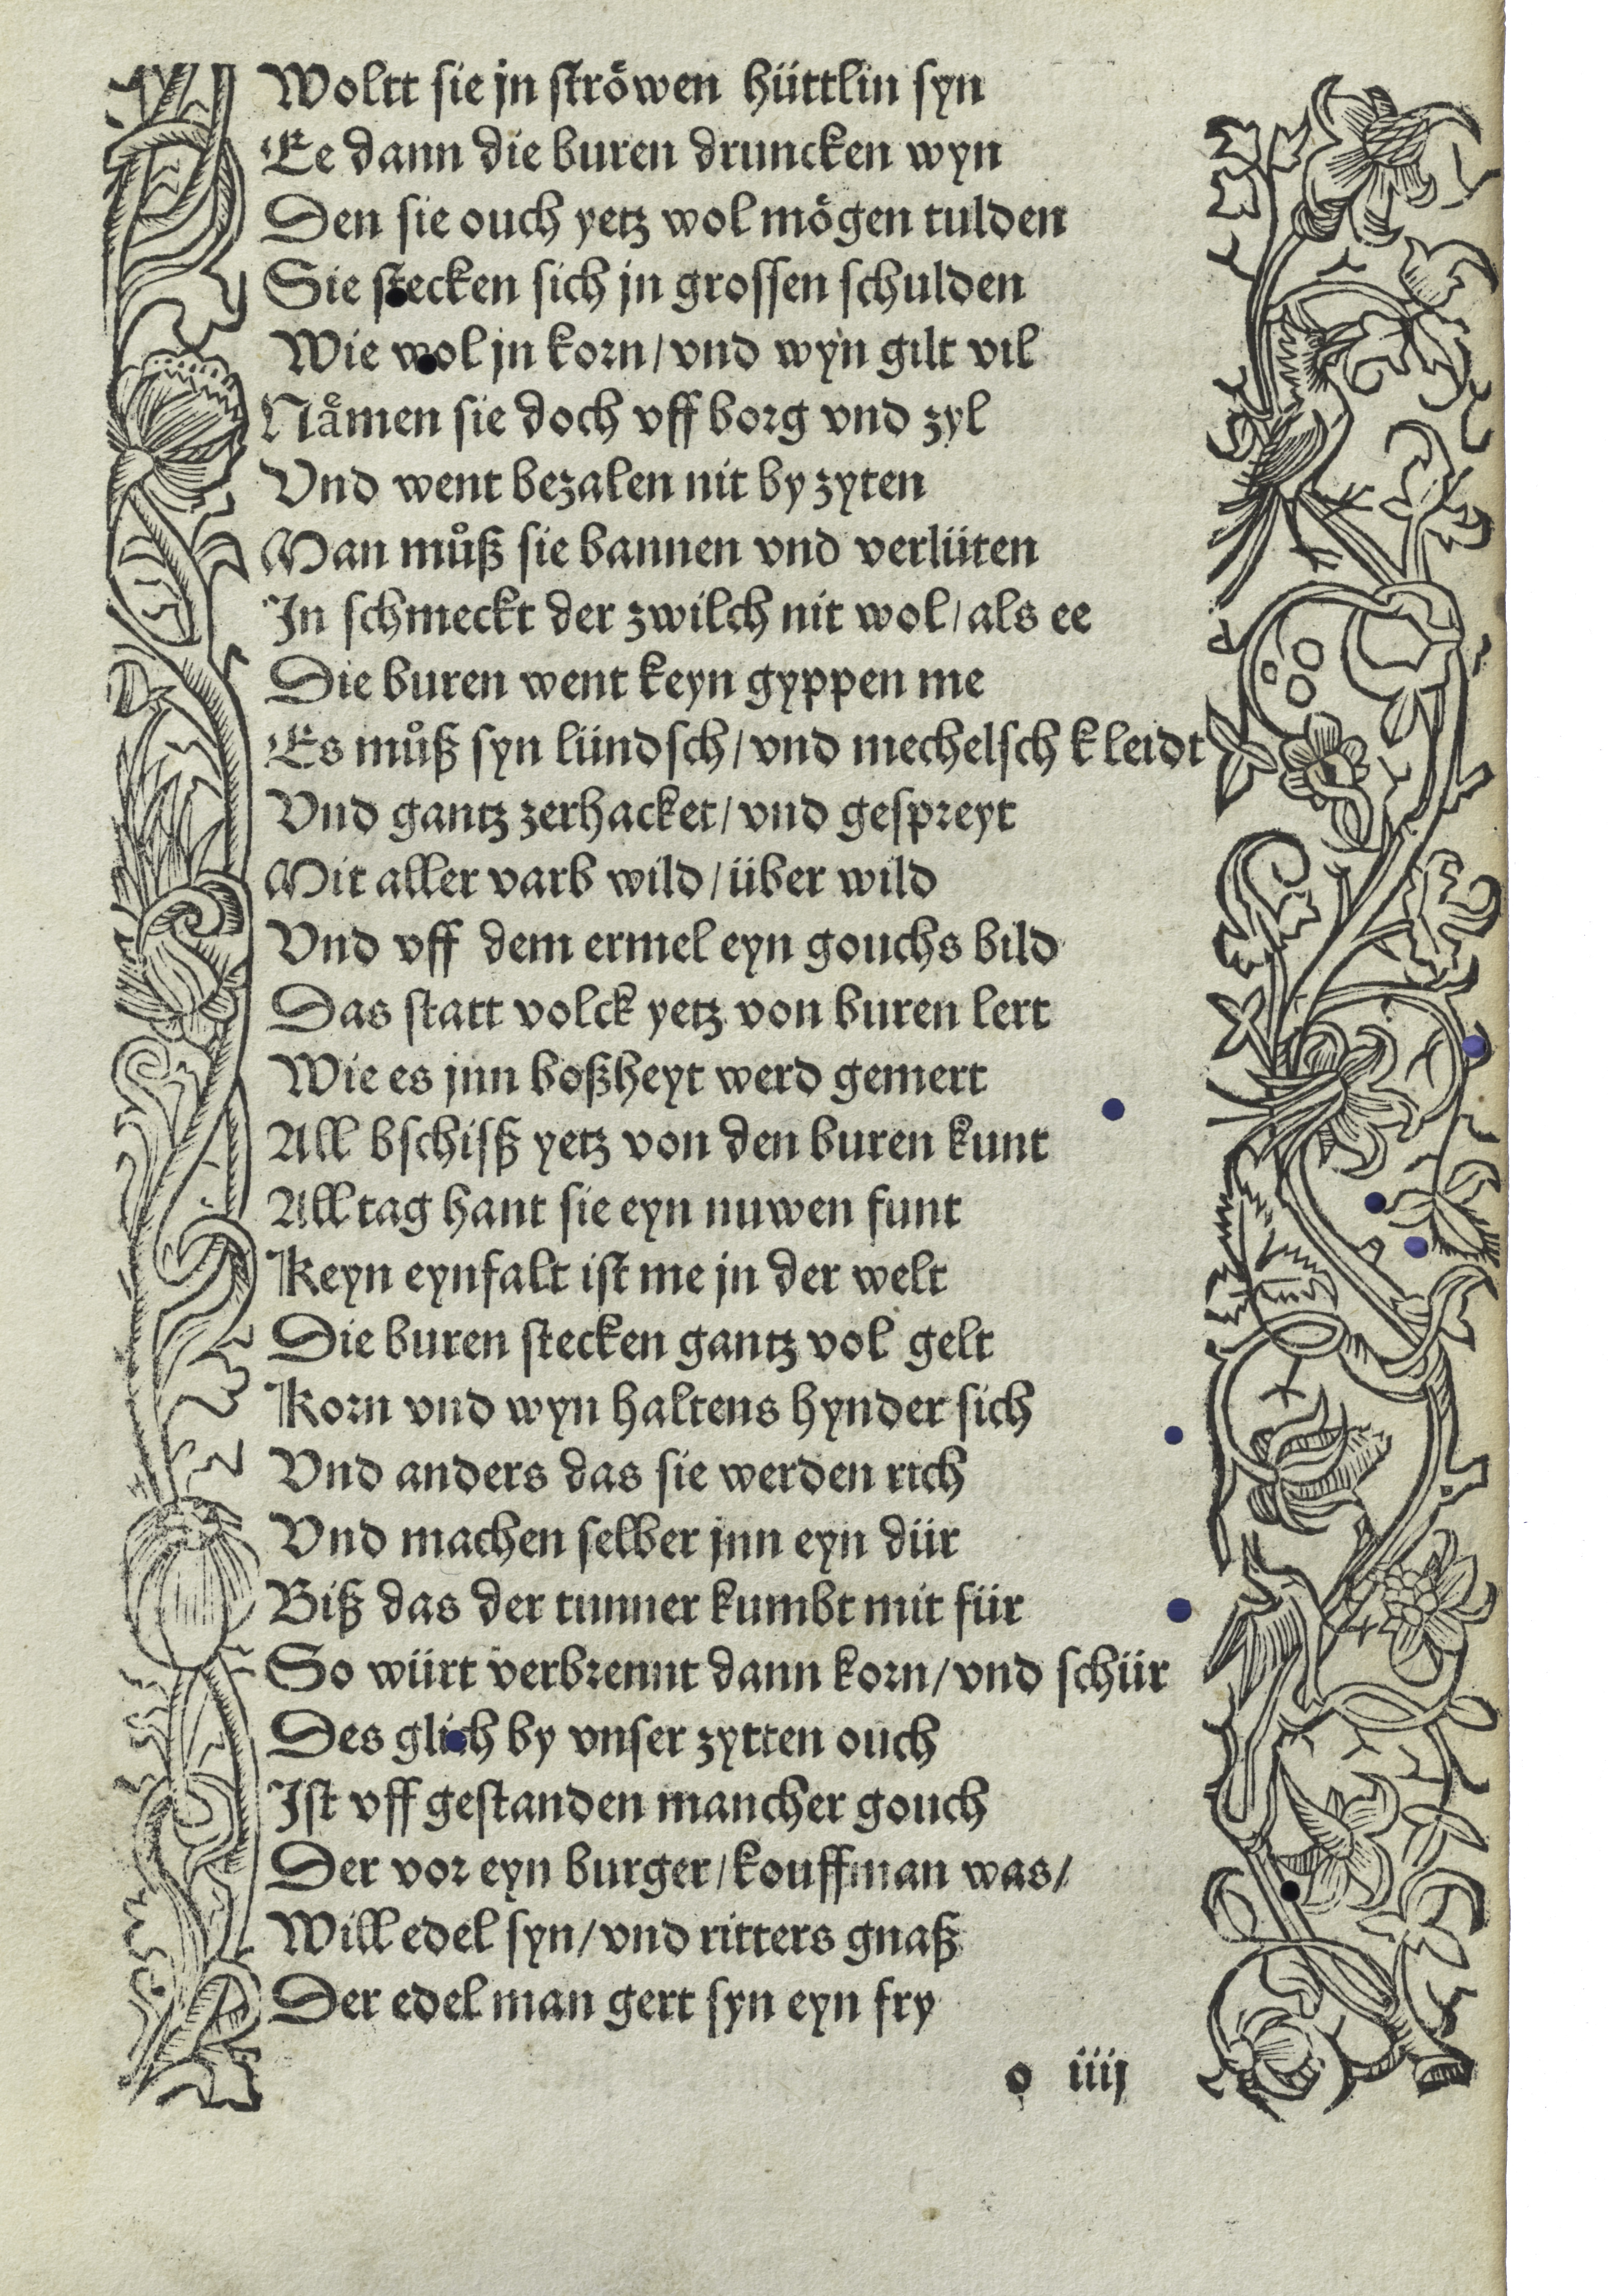 Woltt sie jn ströwen hüttlin syn
Ee dann die buren druncken wyn
Den sie ouch yetz wol mögen tulden
Sie stecken sich jn grossen schulden
Wie wol jn korn/ vnd wyn gilt vil
Nämen sie doch vff borg vnd zyl
Vnd went bezalen nit by zyten
Man můß sie bannen vnd verlüten
In schmeckt der zwilch nit wol/ als ee
Die buren went keyn gyppen me
Es můß syn lündsch/ vnd mechelsch kleidt
Vnd gantz zerhacket/ vnd gespreyt
Mit aller varb wild/ über wild
Vnd vff dem ermel eyn gouchs bild
Das statt volck yetz von buren lert
Wie es jnn boßheyt werd gemert
All bschisß yetz von den buren kunt
All tag hant sie eyn nuwen funt
Keyn eynfalt ist me jn der welt
Die buren stecken gantz vol gelt
Korn vnd wyn haltens hynder sich
Vnd anders das sie werden rich
Vnd machen selber jnn eyn dür
Biß das der tunner kumbt mit für
So würt verbrennt dann korn/ vnd schür
Des glich by vnser zytten ouch
Ist vff gestanden mancher gouch
Der vor eyn burger/ kouffman was/
Will edel syn/ vnd ritters gnaß
Der edel man gert syn eyn fry
o iiij